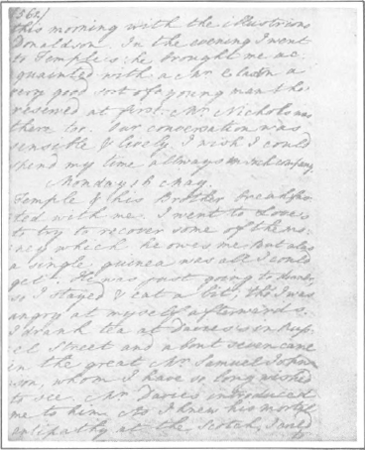 562/
this morning with the illustrious
Donaldson. In the evening I went
to Temple's: he brought me ac-
quainted with a Mr. Claxton a
very good sort of a young man tho'
reserved at first. Mr. Nichols was
there too. Our conversation was
sensible & lively. I wish I could
spend my time allways in such company.
Monday 16 May.
Temple & his Brother breakfas-
ted with me. I went to Love's
to try to recover some of the mo-
ney which he owes me. But alas
a single guinea was all I could
get. He was just going to dinner,
so I stayed & eat a bit; tho' I was
angry at myself afterwards.
I drank tea at Davies's in Rus-
sel Street and about seven came
in the great Mr. Samuel John-
son, whom I have so long wished
to see. Mr. Davies introduced
me to him. As I knew his mortal
antipathy at the Scotch, I